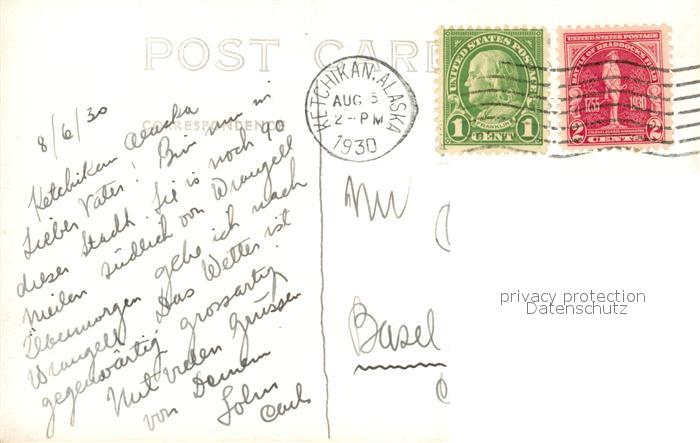 POST CARD
CORRESPONDENCE
8/6/30
Ketchikan Alaska
Lieber Vater! Bin nun in
dieser Stadt. Sie is noch 90
Meilen südlich von Wrangell
Übermorgen gehe ich nach
Wrangell. Das Wetter ist
gegenwärtig grossartig
Mit vielen Grüssen
von Deinem
Sohn
Carl
KETCHIKAN, ALASKA
AUG 6
2-PM
1930
UNITED STATES POSTAGE
FRANKLIN
1 CENT 1
UNITED STATES POSTAGE
BATTLE OF BRADDOCK'S FIELD
1755 1930
2 CENTS 2
Mr
Basel
privacy protection
Datenschutz